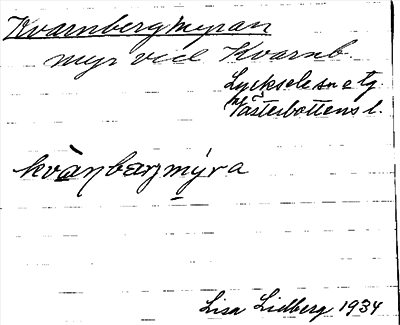 Kvarnbergmyran
myr vid Kvarnb.
Lycksele sn o tg
Västerbottens l.
kvàṇbærjmýra
Lisa Lidberg 1934